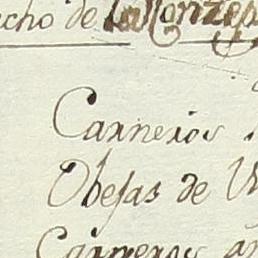 acho de la
Carneros
Obejas de
Carneros